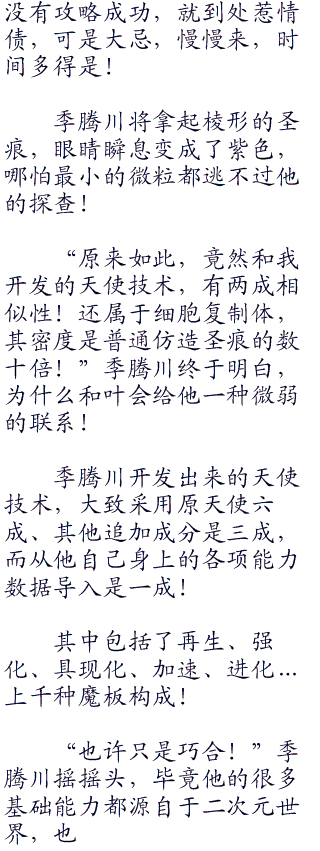 没有攻略成功，就到处惹情
债，可是大忌，慢慢来，时
间多得是！
季腾川将拿起棱形的圣
痕，眼睛瞬息变成了紫色，
哪怕最小的微粒都逃不过他
的探查！
“原来如此，竟然和我
开发的天使技术，有两成相
似性！还属于细胞复制体，
其密度是普通仿造圣痕的数
十倍！”季腾川终于明白，
为什么和叶会给他一种微弱
的联系！
季腾川开发出来的天使
技术，大致采用原天使六
成、其他追加成分是三成，
而从他自己身上的各项能力
数据导入是一成！
其中包括了再生、强
化、具现化、加速、进化...
上千种魔板构成！
“也许只是巧合！”季
腾川摇摇头，毕竟他的很多
基础能力都源自于二次元世
界，也